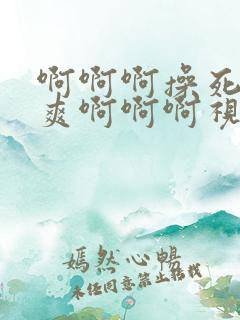 啊啊啊操死
爽啊啊啊視
嫣然心暢
未经同意禁止转载